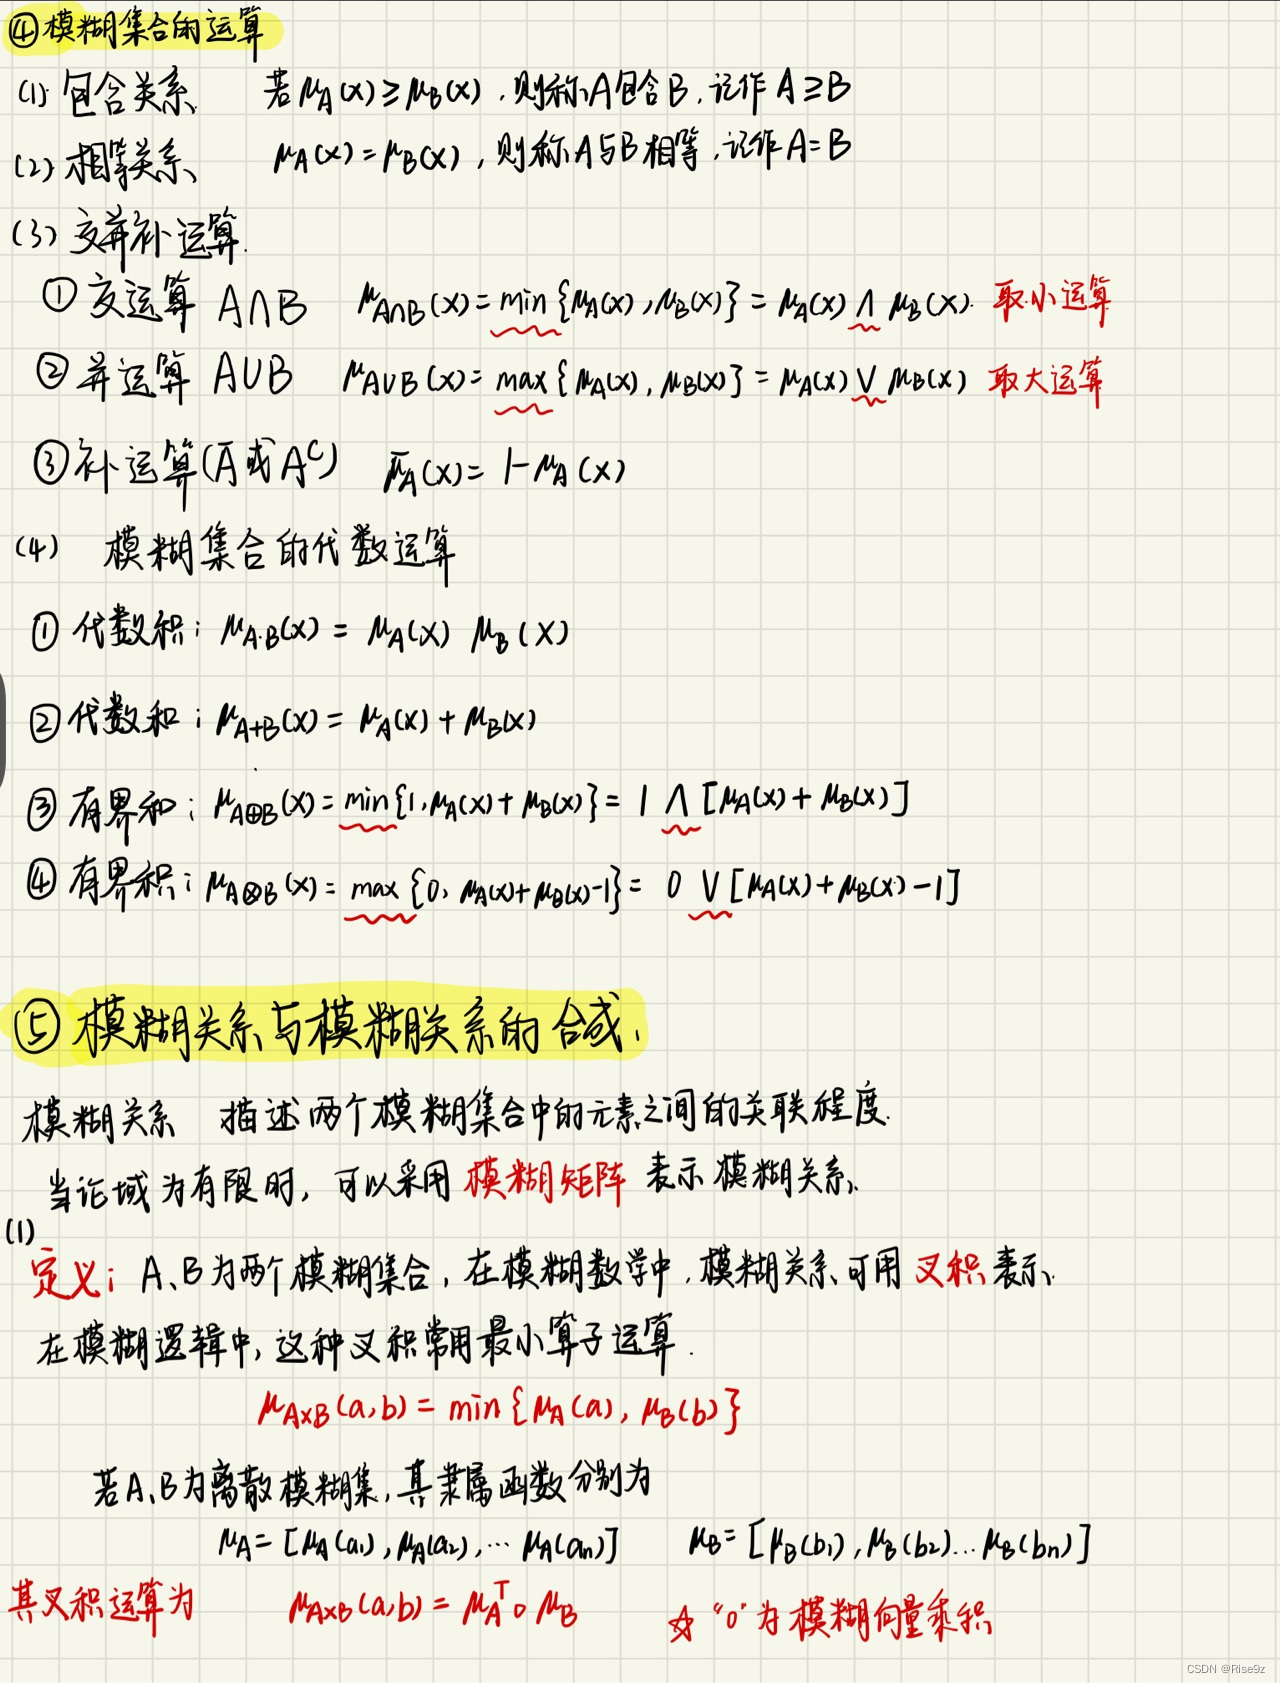 ④模糊集合的运算
(1) 包含关系 若μA(x)≥μB(x),则称A包含B,记作A≥B
(2) 相等关系 μA(x)=μB(x),则称A与B相等,记作A=B
(3) 交并补运算.
① 交运算 A∩B μA∩B(x)=min{μA(x),μB(x)}=μA(x)∧μB(x). 取小运算
② 并运算 A∪B μA∪B(x)=max{μA(x),μB(x)}=μA(x)∨μB(x) 取大运算
③ 补运算(Ā或Aᶜ) μ̄A(x)=1-μA(x)
(4) 模糊集合的代数运算
① 代数积: μA·B(x)=μA(x) μB(x)
② 代数和: μA+B(x)=μA(x)+μB(x)
③ 有界和: μA⊕B(x)=min{1,μA(x)+μB(x)}=1∧[μA(x)+μB(x)]
④ 有界积: μA⊗B(x)=max{0,μA(x)+μB(x)-1}=0∨[μA(x)+μB(x)-1]
⑤ 模糊关系与模糊关系的合成.
模糊关系 描述两个模糊集合中的元素之间的关联程度.
当论域为有限时,可以采用模糊矩阵表示模糊关系.
(1)
定义: A、B为两个模糊集合,在模糊数学中,模糊关系可用叉积表示.
在模糊逻辑中,这种叉积常用最小算子运算.
μA×B(a,b)=min{μA(a),μB(b)}
若A、B为离散模糊集,其隶属函数分别为
μA=[μA(a₁),μA(a₂),…μA(an)] μB=[μB(b₁),μB(b₂)…μB(bn)]
其叉积运算为 μA×B(a,b)=μAᵀ∘μB ☆ "∘"为模糊向量乘积
CSDN @Rise9z